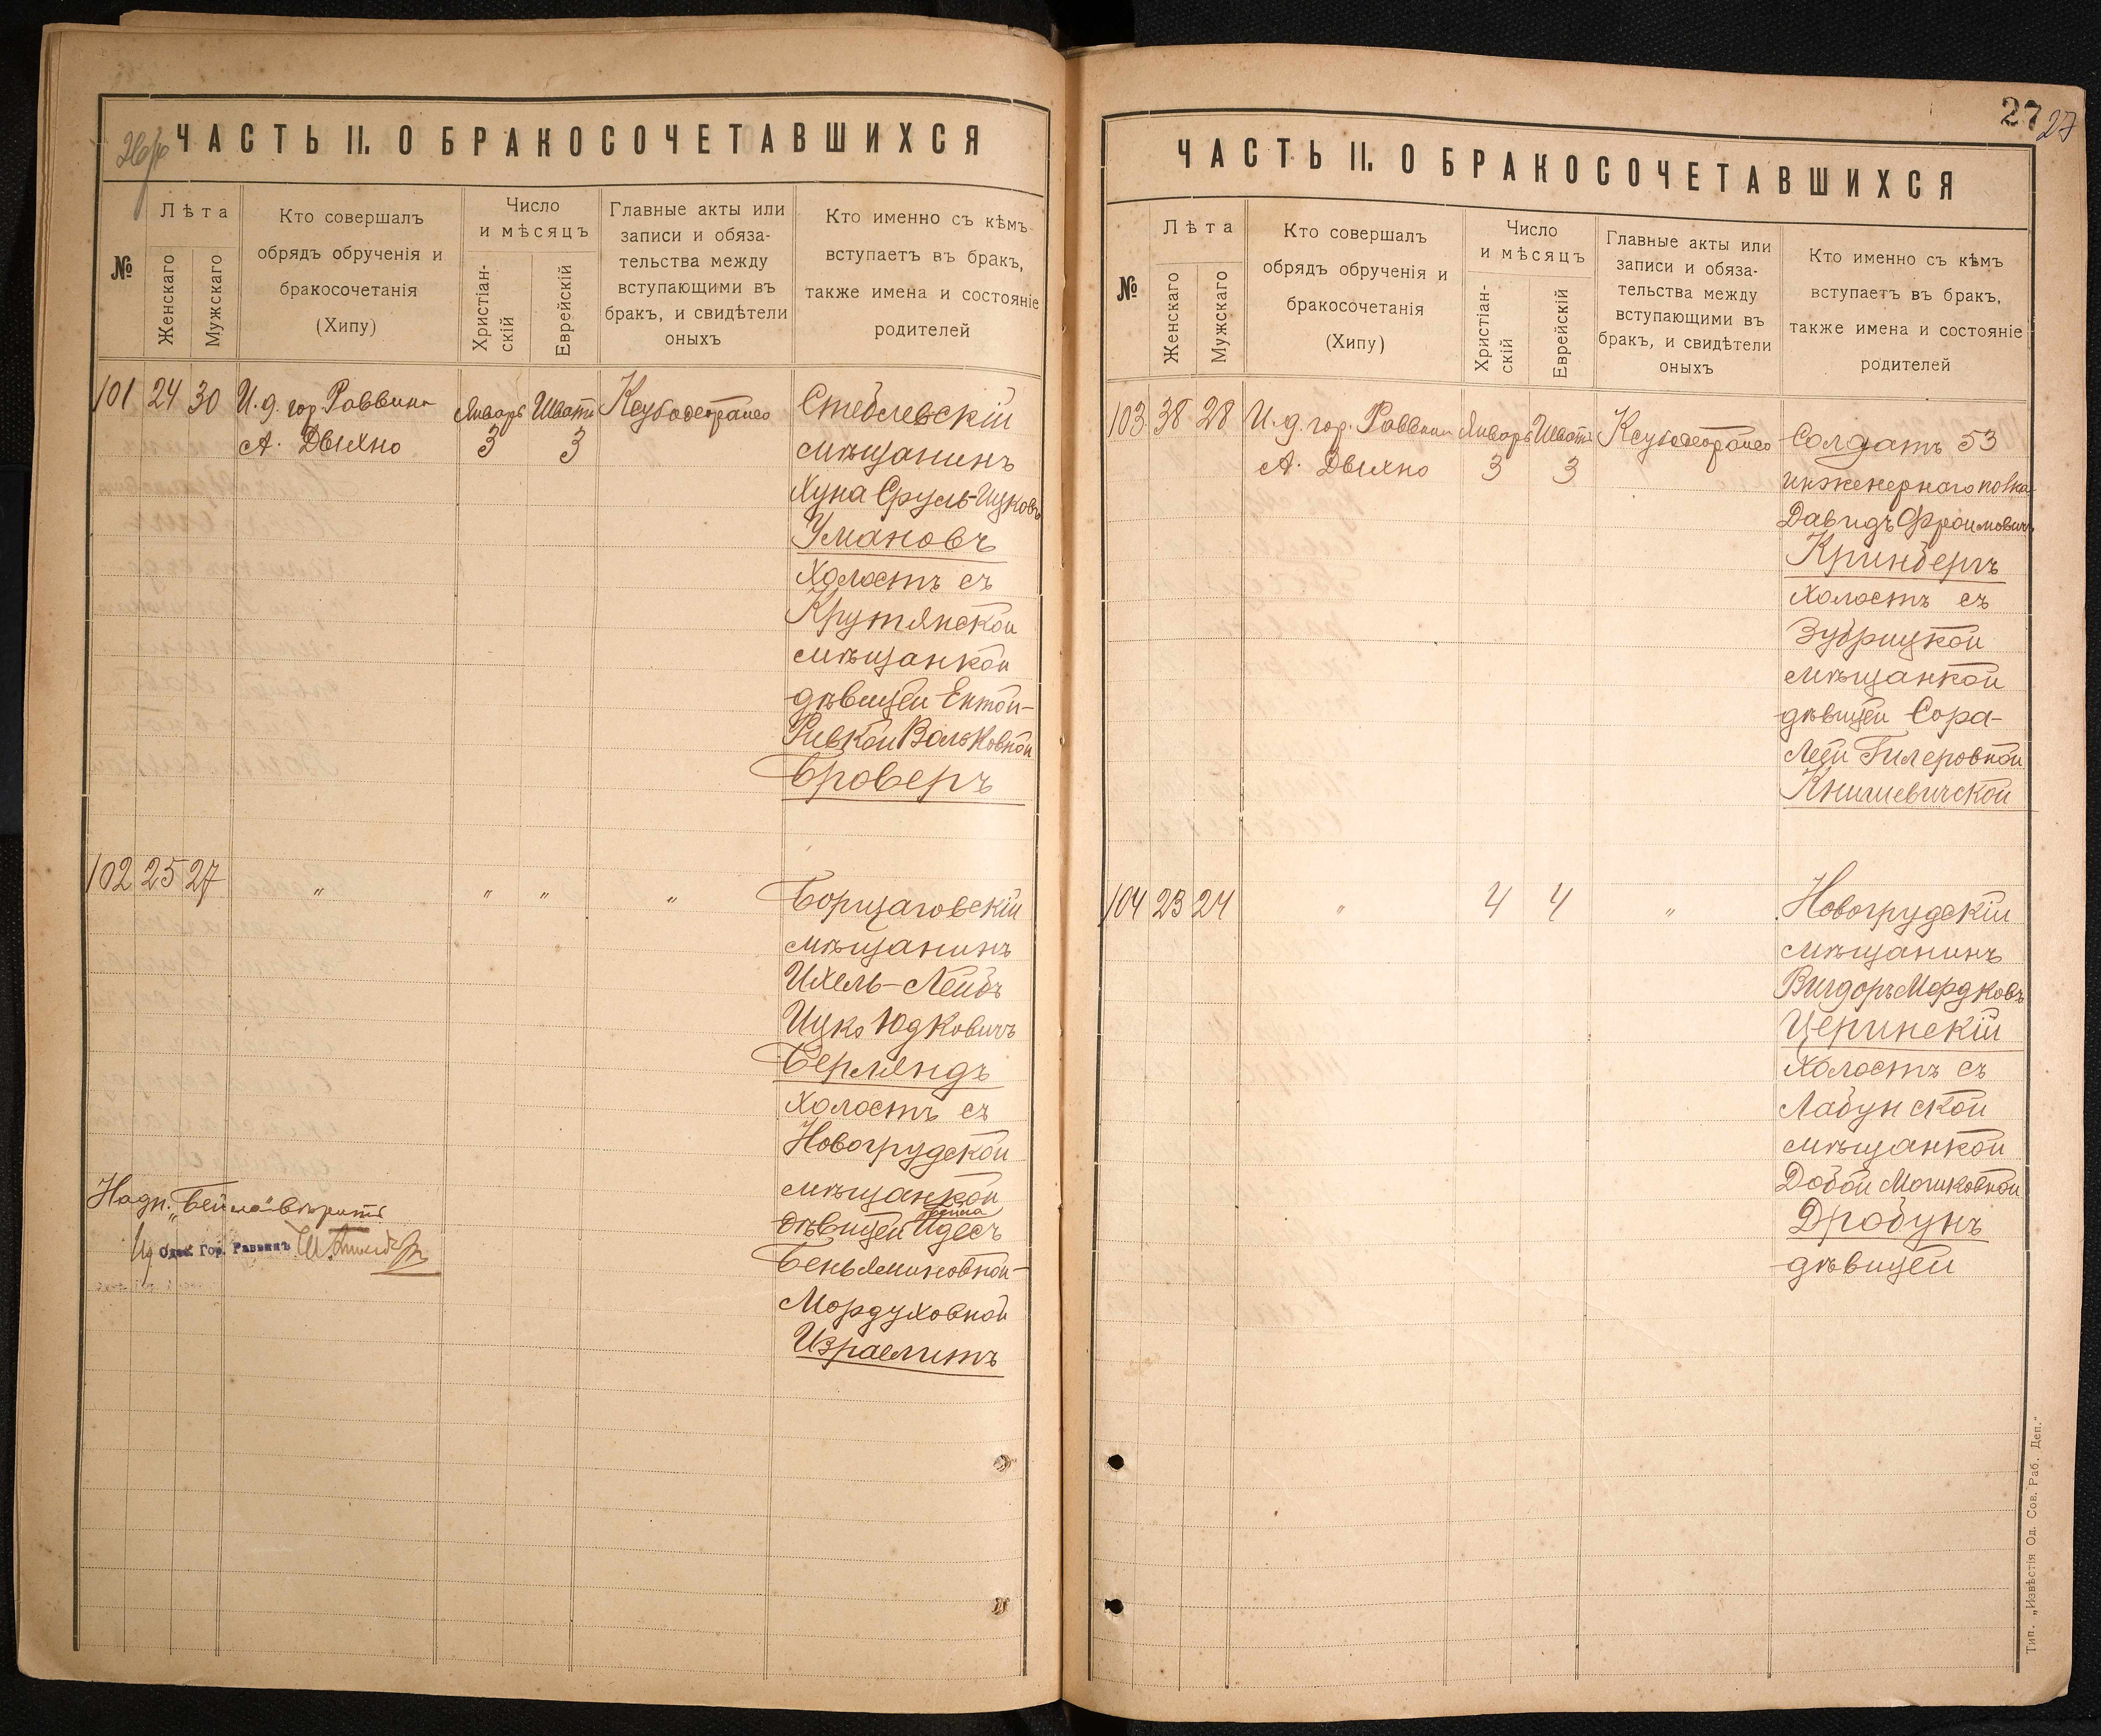 26/об
ЧАСТЬ II. О БРАКОСОЧЕТАВШИХСЯ
№
Лѣта
Женскаго
Мужскаго
Кто совершалъ
обрядъ обрученія и
бракосочетанія
(Хипу)
Число
и мѣсяцъ
Христіан-
скій
Еврейскій
Главные акты или
записи и обяза-
тельства между
вступающими въ
бракъ, и свидѣтели
оныхъ
Кто именно съ кѣмъ
вступаетъ въ бракъ,
также имена и состояніе
родителей
101 24 30
И. д. гор. Раввина
А. Двихно
Январь
3
Шватъ
3
Стеблевскій
мѣщанинъ
Хуна Сруль-Ицковъ
Умановъ
холостъ съ
Крутянской
мѣщанкой
дѣвицей Ентой-
Ривкой Вольковной
Броверъ
102 25 27
" " " "
Борщаговскій
мѣщанинъ
Ихель-Лейбъ
Ицко Юдковичъ
Берляндъ
холостъ съ
Новогрудской
мѣщанкой
Бейла
дѣвицей Идесъ
Беньяминовной-
Мордуховной
Израелитъ
Надп. „Бейла" вѣрить
Ид Одес. Гор. Раввинъ
27
27
ЧАСТЬ II. О БРАКОСОЧЕТАВШИХСЯ
№
Лѣта
Женскаго
Мужскаго
Кто совершалъ
обрядъ обрученія и
бракосочетанія
(Хипу)
Число
и мѣсяцъ
Христіан-
скій
Еврейскій
Главные акты или
записи и обяза-
тельства между
вступающими въ
бракъ, и свидѣтели
оныхъ
Кто именно съ кѣмъ
вступаетъ въ бракъ,
также имена и состояніе
родителей
103 38 28
И. д. гор. Раввина
А. Двихно
Январь
3
Шватъ
3
Солдатъ 53
инженернаго полка
Давидъ Фроимовичъ
Кринбергъ
холостъ съ
Зубрицкой
мѣщанкой
дѣвицей Сора-
Леей Гилеровной
Книшевичской
104 23 24
" 4 4 "
Новогрудскій
мѣщанинъ
Вигдоръ Мордковъ
Церинскій
холостъ съ
Лабунской
мѣщанкой
Добой Мошковной
Дробунъ
дѣвицей
Тип. „Извѣстія Од. Сов. Раб. Деп."